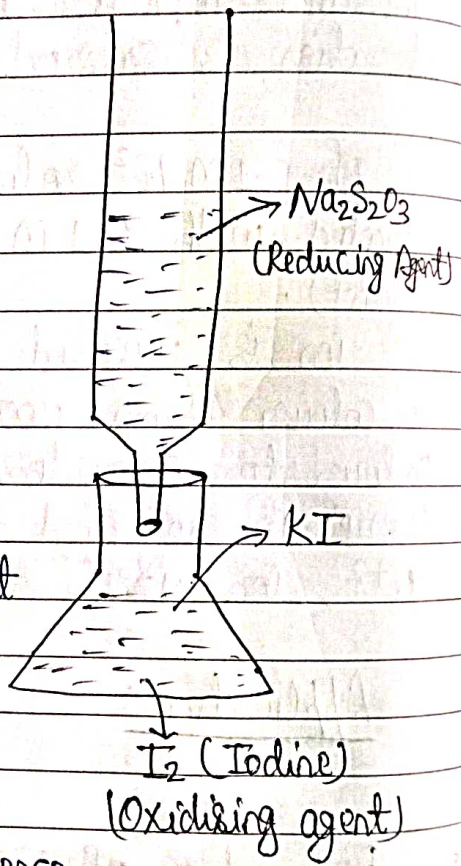 Na₂S₂O₃
(Reducing Agent)
KI
I₂ (Iodine)
(Oxidising agent)